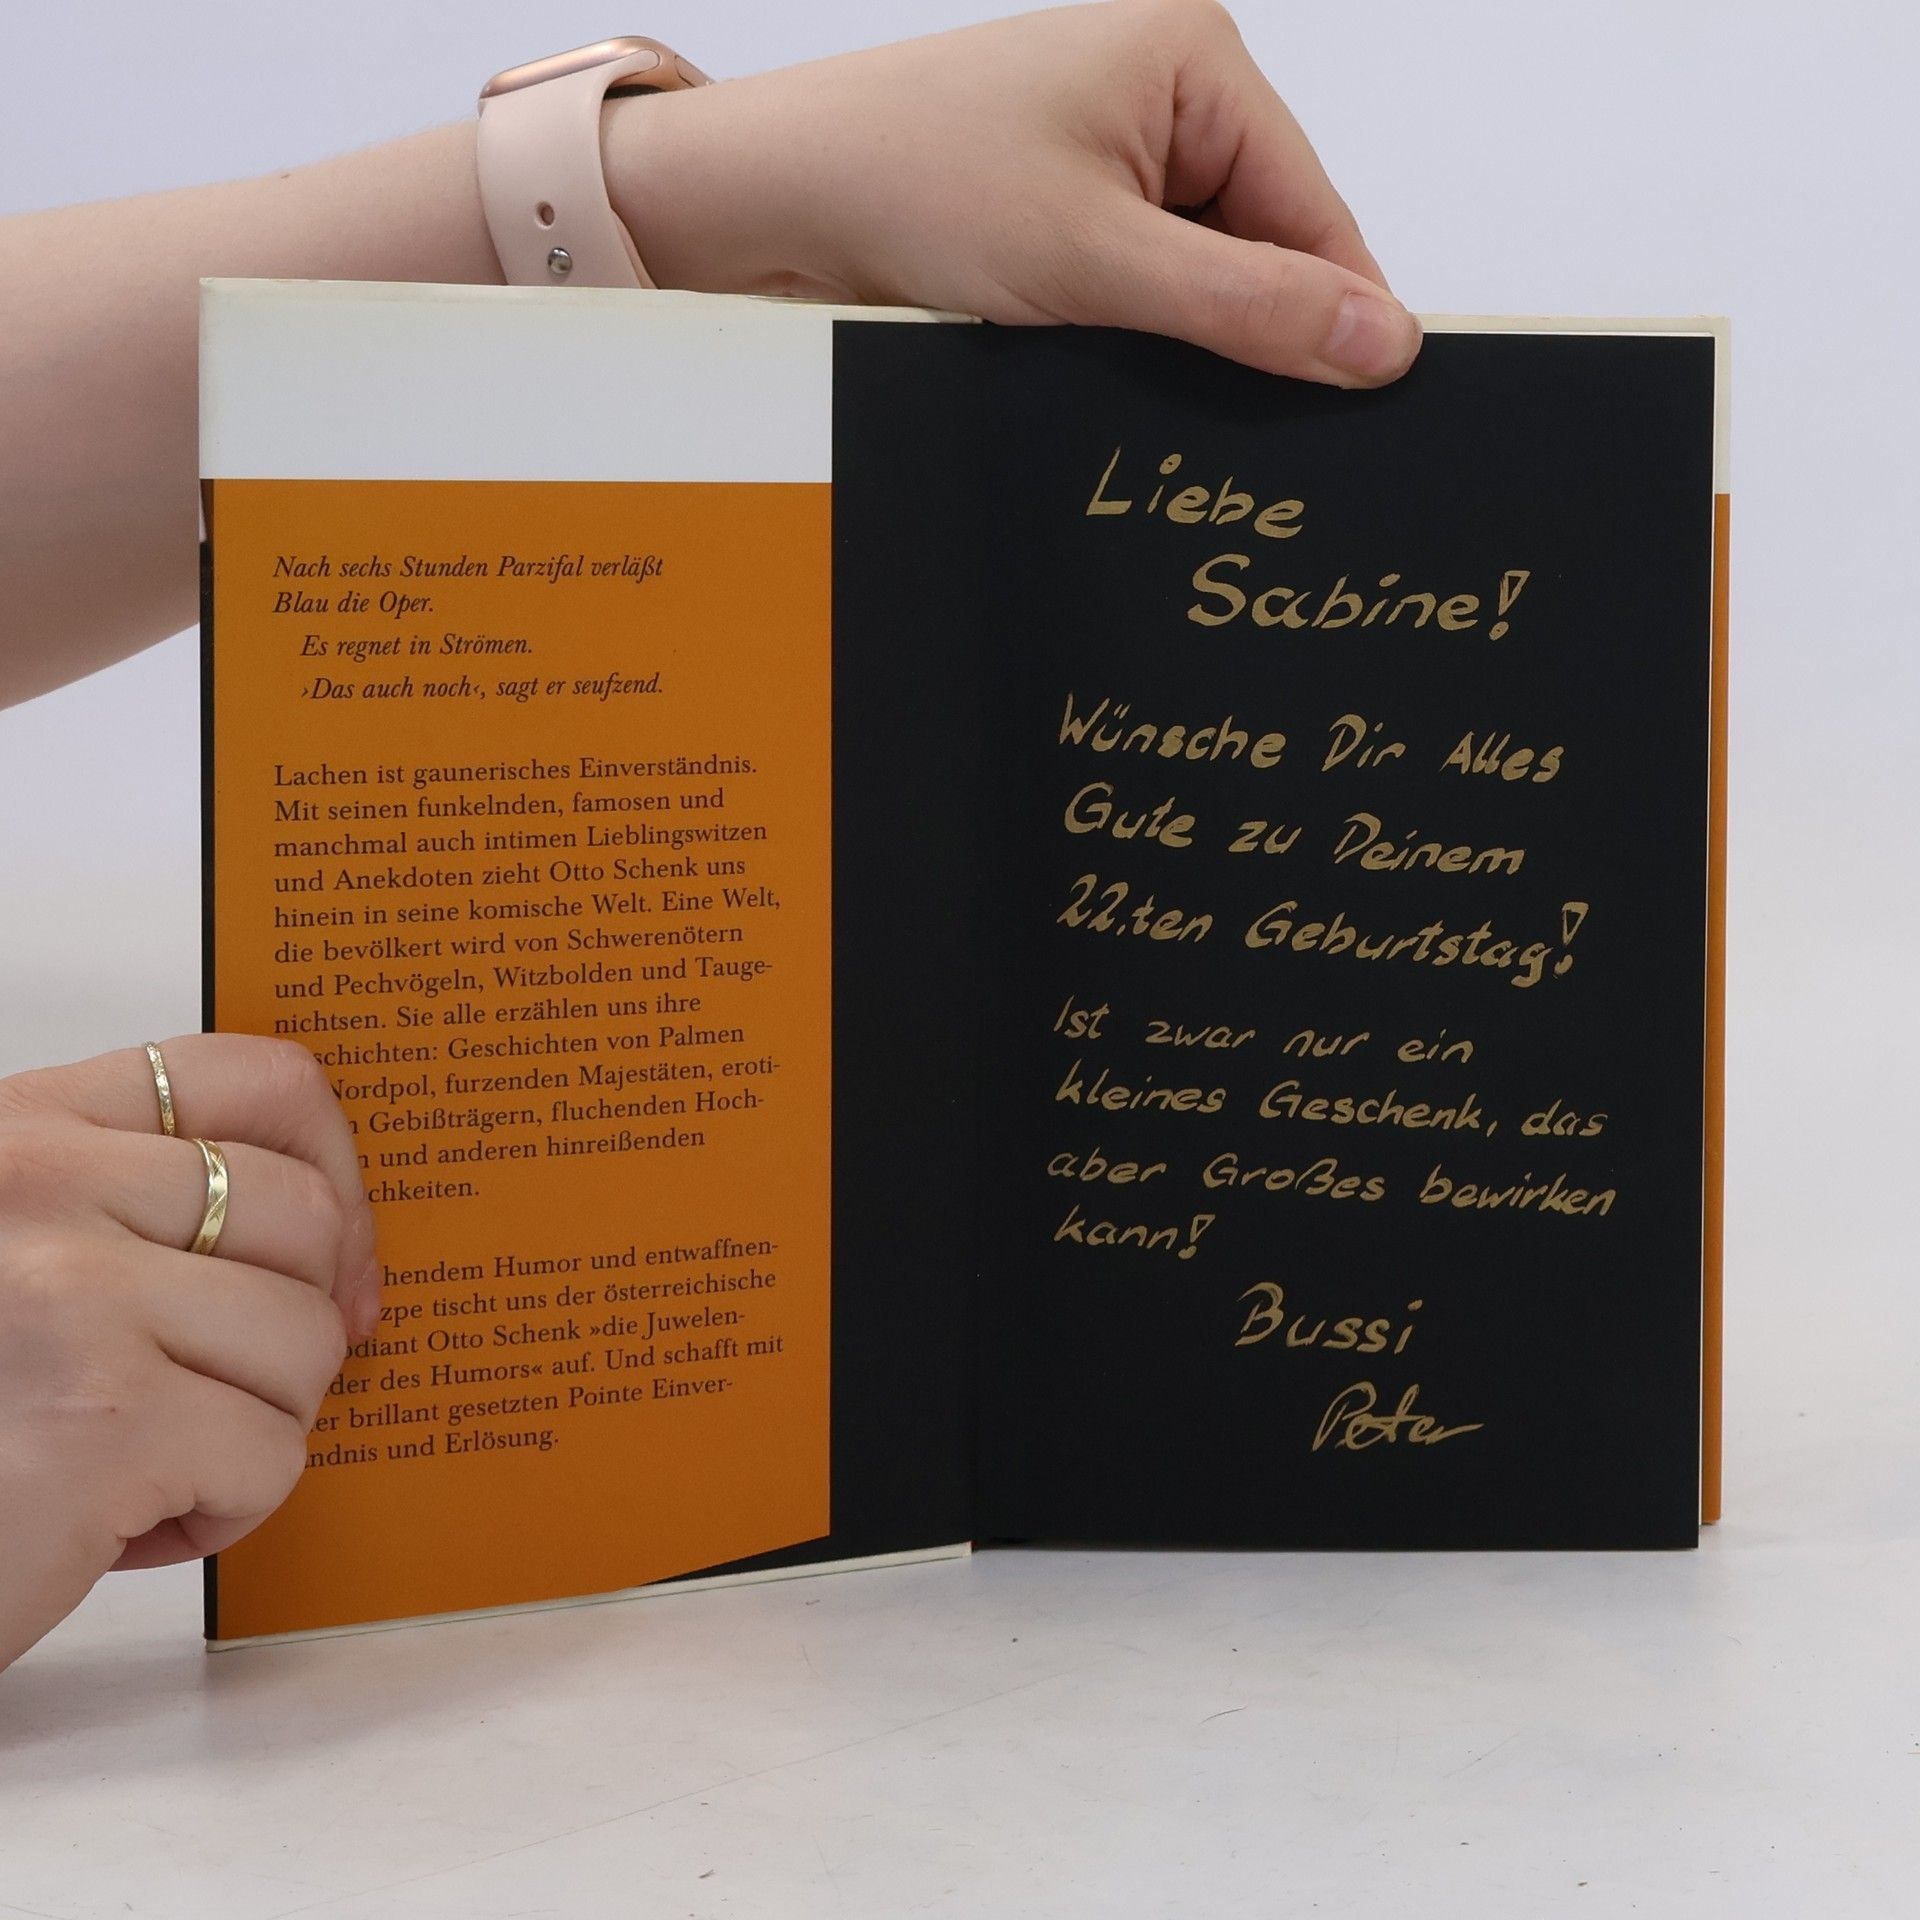 Nach sechs Stunden Parzifal verläßt
Blau die Oper.
Es regnet in Strömen.
›Das auch noch‹, sagt er seufzend.
Lachen ist gaunerisches Einverständnis.
Mit seinen funkelnden, famosen und
manchmal auch intimen Lieblingswitzen
und Anekdoten zieht Otto Schenk uns
hinein in seine komische Welt. Eine Welt,
die bevölkert wird von Schwerenötern
und Pechvögeln, Witzbolden und Tauge-
nichtsen. Sie alle erzählen uns ihre
schichten: Geschichten von Palmen
Nordpol, furzenden Majestäten, eroti-
n Gebißträgern, fluchenden Hoch-
n und anderen hinreißenden
chkeiten.
hendem Humor und entwaffnen-
zpe tischt uns der österreichische
odiant Otto Schenk »die Juwelen-
der des Humors« auf. Und schafft mit
er brillant gesetzten Pointe Einver-
ndnis und Erlösung.
Liebe
Sabine!
Wünsche Dir Alles
Gute zu Deinem
22.ten Geburtstag!
Ist zwar nur ein
kleines Geschenk, das
aber Großes bewirken
kann!
Bussi
Peter